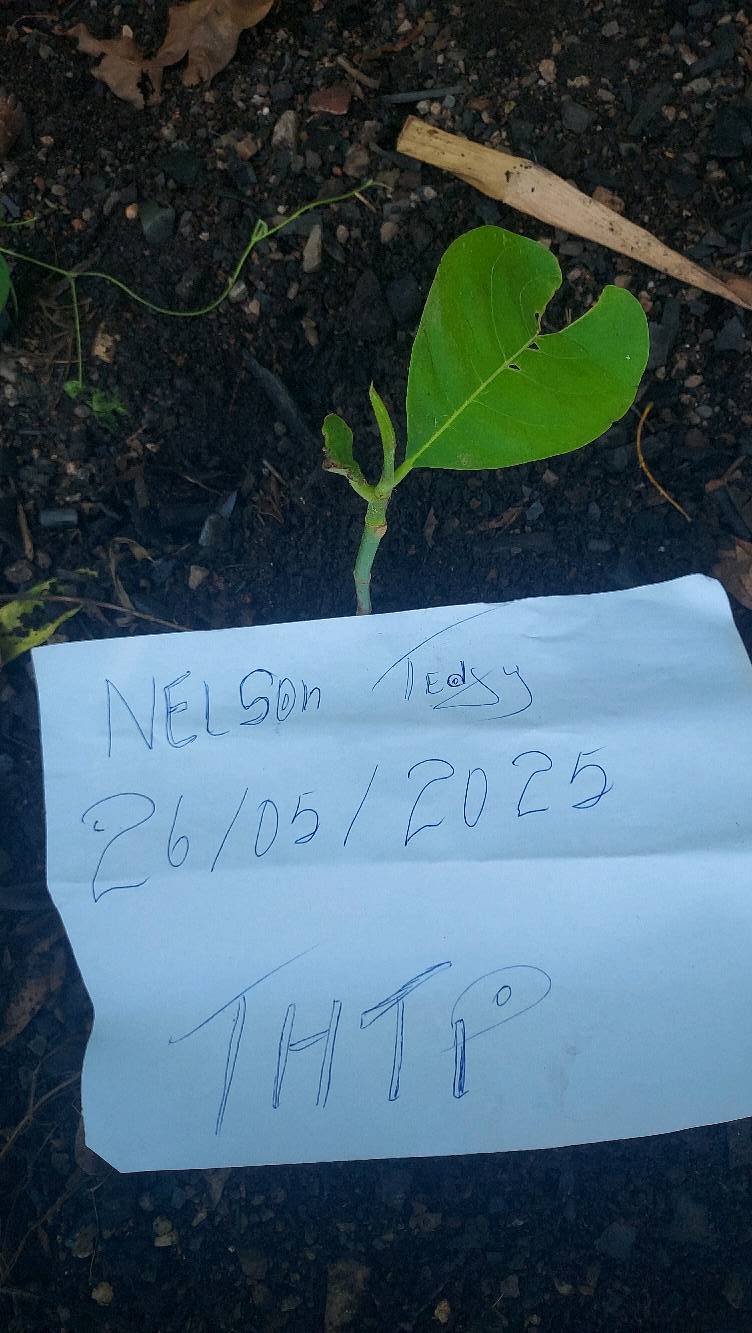 NELSON Tedsy
26/05/2025
THTP